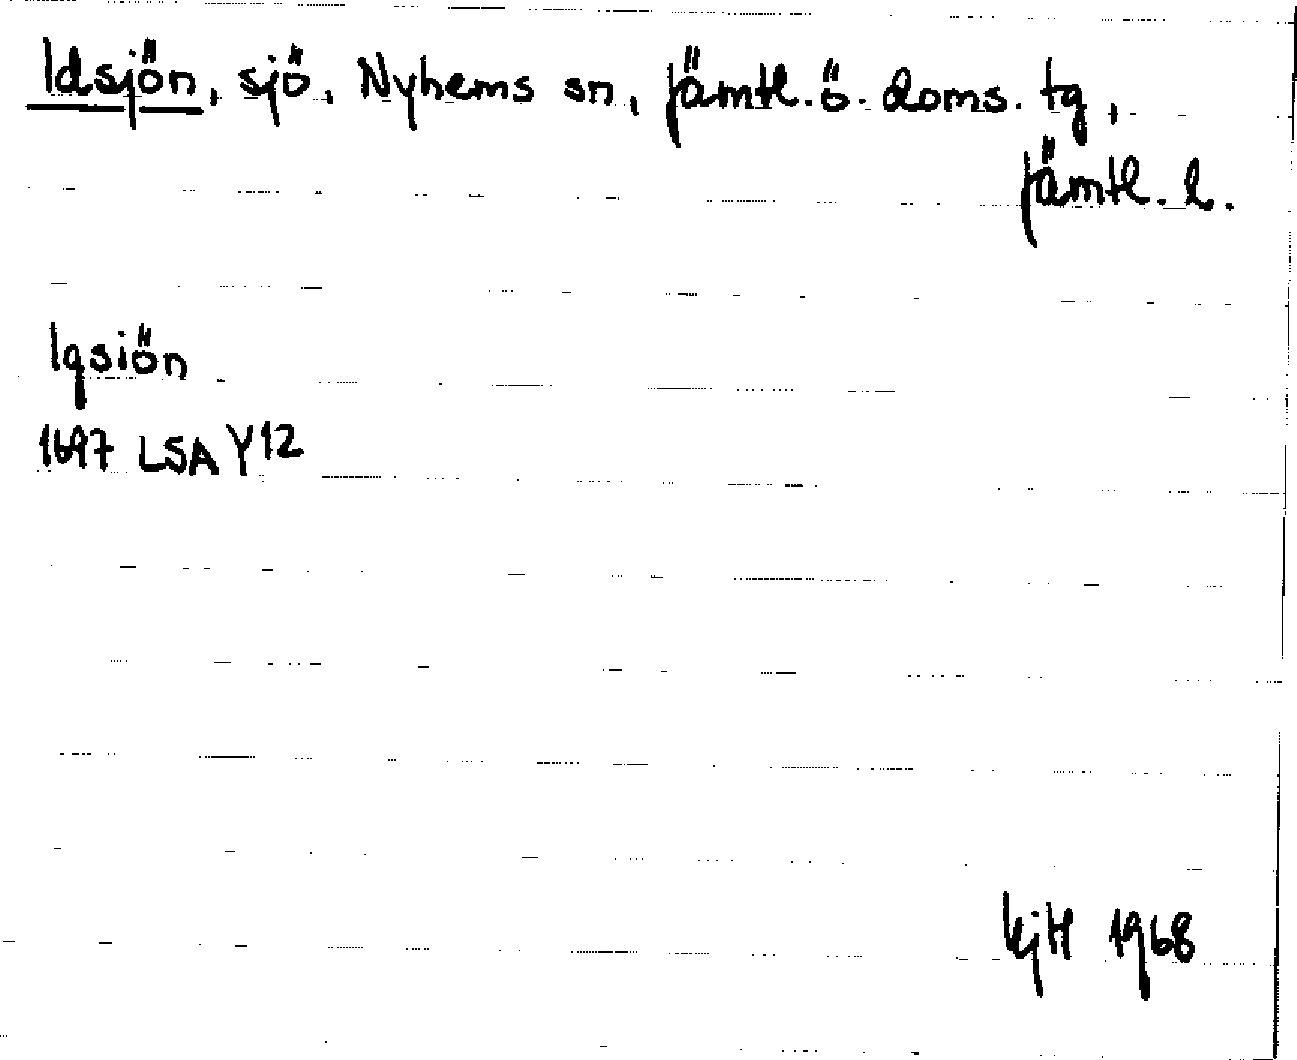 Idsjön, sjö, Nyhems sn, Jämtl. ö. doms. tg,
Jämtl. l.
Igsiön
1697 LSA Y12
KjH 1968